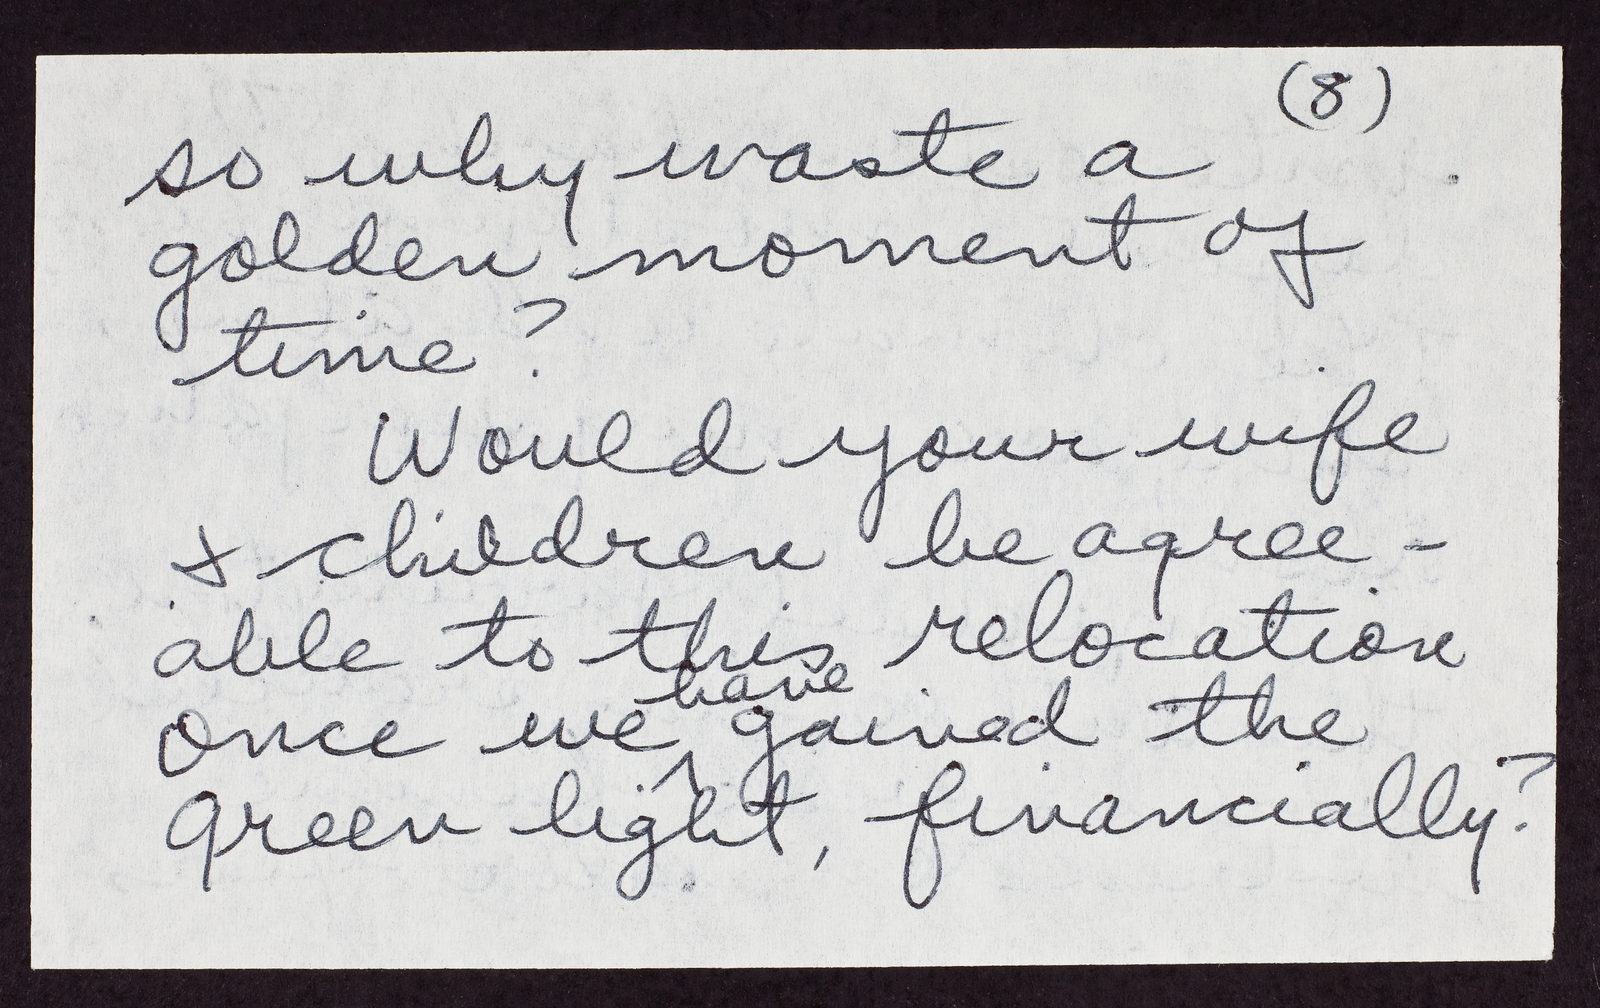 (8)
so why waste a
golden moment of
time?
Would your wife
& children be agree-
able to this relocation
have
once we ^ gained the
green light, financially?